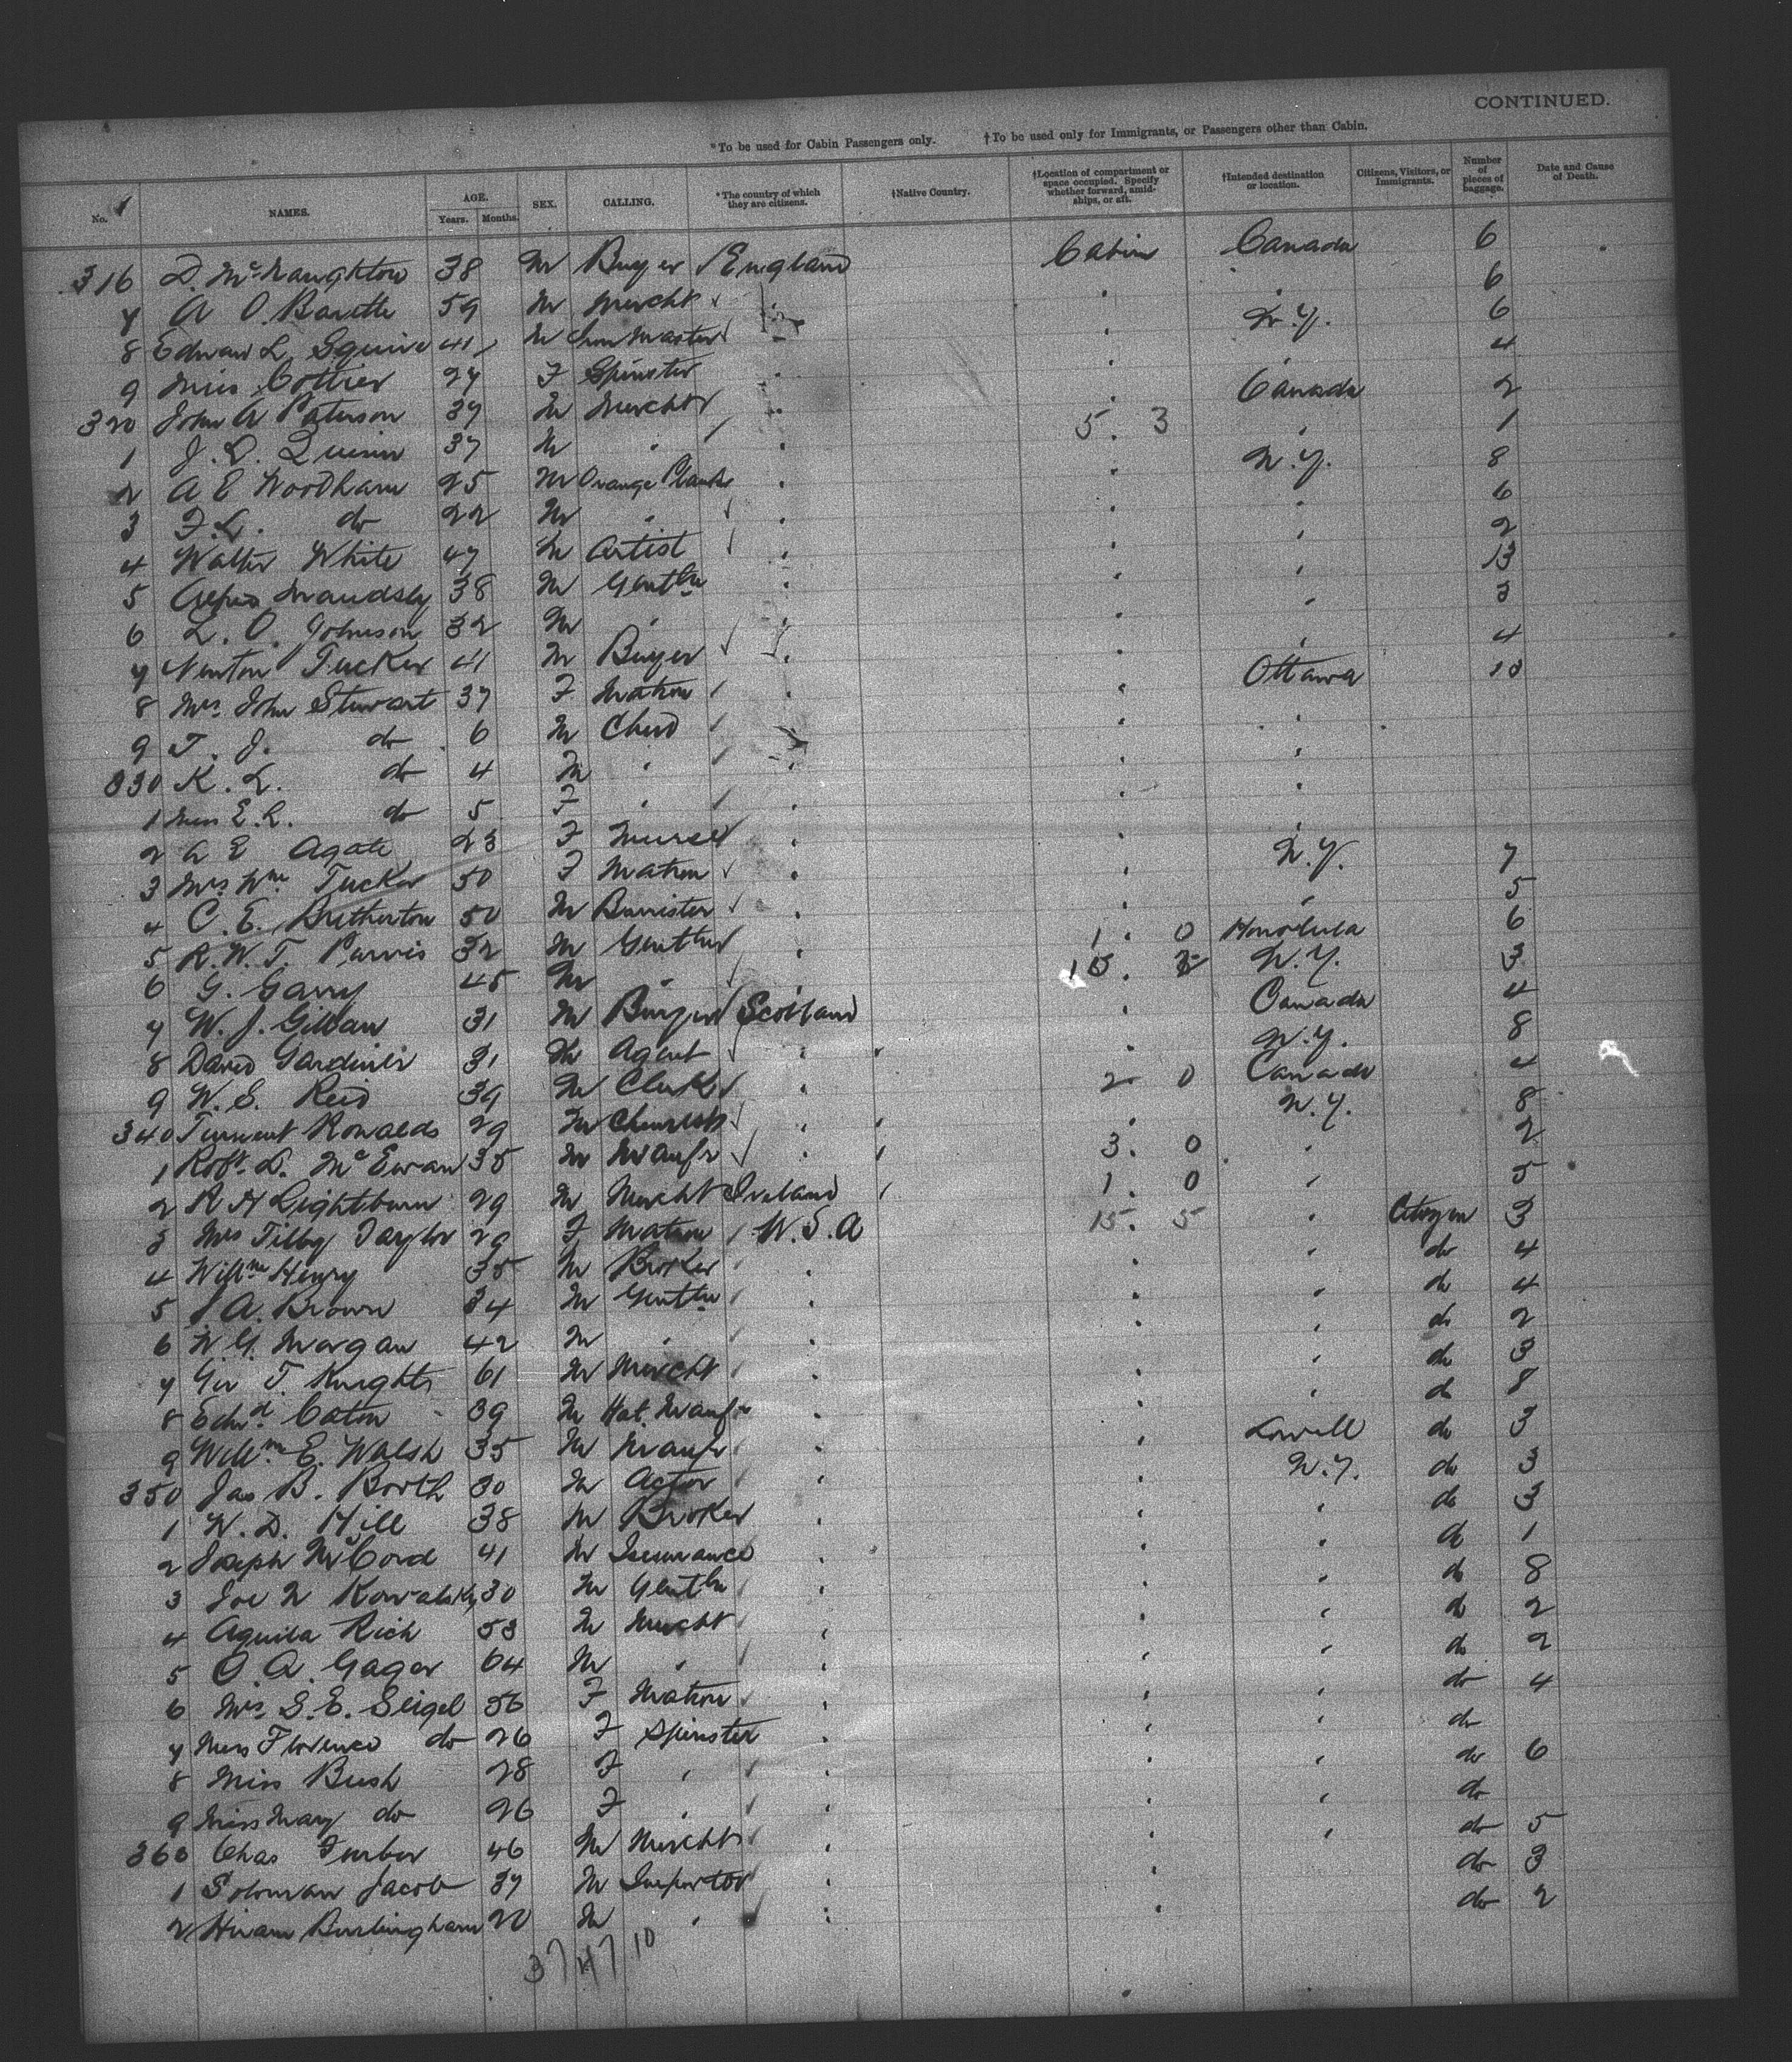 CONTINUED.
*To be used for Cabin Passengers only. †To be used only for Immigrants, or Passengers other than Cabin.
No. NAMES. AGE. Years. Months. SEX. CALLING. *The country of which they are citizens. †Native Country. †Location of compartment or space occupied. Specify whether forward, amidships, or aft. †Intended destination or location. Citizens, Visitors, or Immigrants. Number of pieces of baggage. Date and Cause of Death.
316 D. McNaughton 38 M Buyer England Cabin Canada 6
7 A O. Barette 59 M Mercht " " " 6
8 Edward L. Squire 41 M Iron Master " " N.Y. 6
9 Miss Cottier 27 F Spinster " " " 4
320 John A Paterson 37 M Mercht " " Canada 2
1 J. D. Quinn 37 M " " 5. 3 " 1
2 A E Woodham 25 M Orange Planter " " N.Y. 8
3 F.L. do 22 M " " " " 6
4 Walter White 47 M Artist " " " 2
5 Alfred Maudsly 38 M Gentln " " " 13
6 L. O. Johnson 32 M " " " " 3
7 Newton Tucker 41 M Buyer " " " 4
8 Mrs. John Stewart 37 F Matron " " Ottawa 10
9 T. J. do 6 M Child " " "
330 K. L. do 4 M " " " "
1 Miss E.L. do 5 F " " " "
2 A E Agate 23 F Nurse " " "
3 Mrs Wm Tucker 50 F Matron " " N.Y. 7
4 C. E. Bretherton 50 M Barrister " " " 5
5 R. W. T. Purvis 32 M Gentln " 1. 0 Honolulu 6
6 G. Garry 45 M " " 15. N.Y. 3
7 W. J. Gillan 31 M Buyer Scotland " Canada 4
8 David Gardiner 31 M Agent " " N.Y. 8
9 W. S. Reid 39 M Clerk " 2 0 Canada 4
340 Tennent Ronalds 29 M Chemist " " N.Y. 8
1 Robt. D. McEwan 35 M Manfr " 3. 0 " 2
2 R H Lightburn 29 M Mercht Ireland 1. 0 " 5
3 Mrs Tilby Taylor 29 F Matron U.S.A 15. 5 " Citizen 3
4 Willm Henry 35 M Broker " " " do 4
5 A. Brown 34 M Gentln " " " do 4
6 W G. Morgan 42 M " " " " do 2
7 Geo T. Knights 61 M Mercht " " " do 3
8 Edwd. Caton 39 M Hat. Manfr " " " do 8
9 Willm E. Walsh 35 M Manfr " " Lowell do 3
350 Jas B. Booth 30 M Actor " " N.Y. do 3
1 W. D. Hill 38 M Broker " " " do 3
2 Joseph McCord 41 M Insurance " " " do 1
3 Joe N Kowalsky 30 M Gentln " " " do 8
4 Aquila Rich 53 M Mercht " " " do 2
5 O. A. Gager 64 M " " " " do 2
6 Mrs. S. E. Seigel 56 F Matron " " " do 4
7 Miss Florence do 26 F Spinster " " " do
8 Miss Bush 28 F " " " " do 6
9 Miss Mary do 26 F " " " " do
360 Chas Furber 46 M Mercht " " " do 5
1 Soloman Jacob 37 M Importer " " do 3
2 Hiram Burlingham 20 M " " " do 2
37 47 10